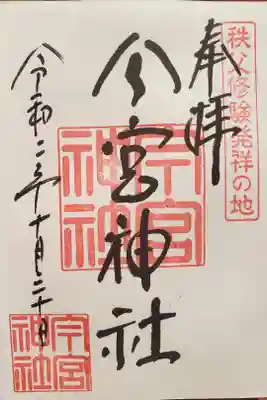 秩父修験発祥の地
奉拝
今宮神社
今宮神社
令和二年十月二十日
今宮神社